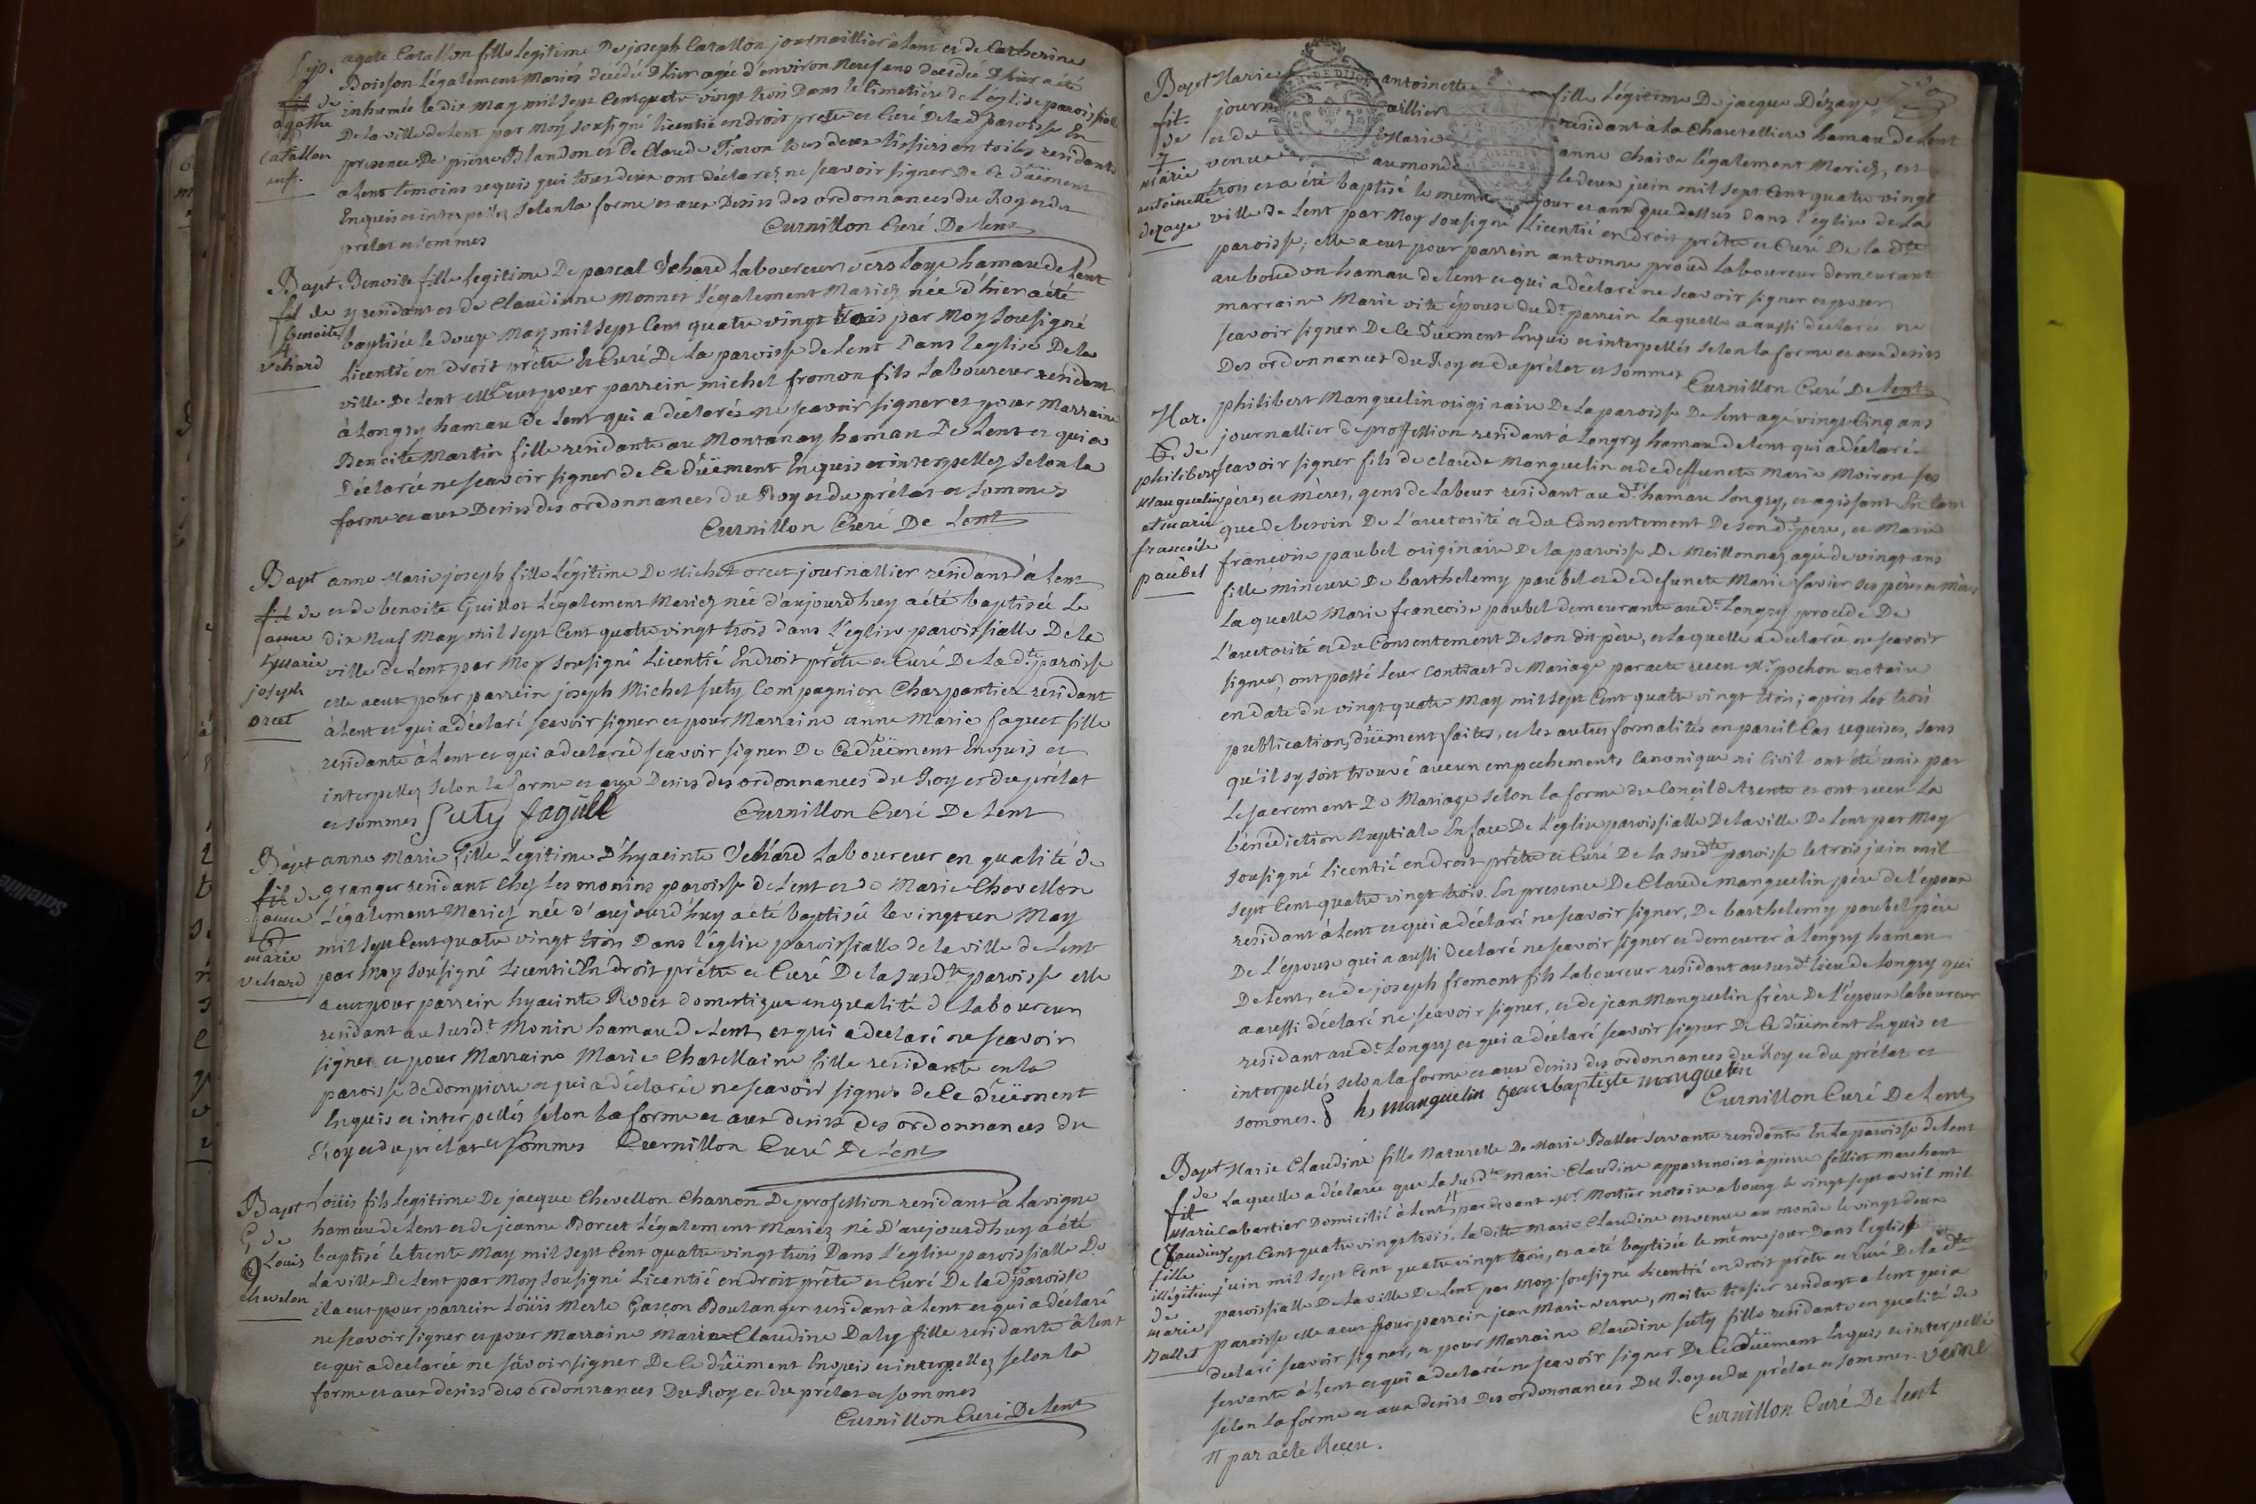 Sep.
de
agathe
Catallon
enf.
agate Catallon fille legitime De joseph Catallon journaillier a lent et de Catherine
Boisson légalement Mariés décédée D'hier agée d'environ Neuf ans décédée D'hier a été
inhumée le dix may mil sept Cent quatre vingt trois Dans le Cimetière de l'église paroissiale
De la ville de Lent par Moy sousigné licentié en droit prêtre et Curé De la de paroisse En
presence De pierre Blandon et De Claude Timon tous deux tissiers en toiles residants
a lent temoins requis qui tous deux ont declarez ne scavoir signer De Ce Düement
Enquis et interpellez Selon la forme et aux Desirs des ordonnances du Roy et du
prélat et Sommes
Curnillon Curé De Lent
Bapt
fil de
benoite
4
Vehard
Benoite fille legitime De pascal Vehard Laboureur vers laye hamau de Lent
y residant et de Claudine Monnet légalement Mariez née d'hier a été
baptisée le douze May mil sept Cent quatre vingt trois par Moy Sousigné
licentié en droit prêtre & Curé De La paroisse de Lent Dans l'eglise De la
ville De Lent elle a eut pour parrein michel fromon fils Laboureur residant
à Longry hamau de Lent qui a déclaré ne scavoir signer et pour Marraine
Benoite Martin fille residante au Montanay hamau De Lent et qui a
Déclarée ne scavoir signer de Ce Düement Enquis et interpellez Selon la
forme et aux Desirs des ordonnances du Roy et du prélat et Sommés
Curnillon Curé De Lent
Bapt
fil de
anne
5 Marie
joseph
orcet
anne Marie joseph fille Légitime De Michel orcet journallier residant à Lent
et de benoite Guillot Légalement Mariez née d'aujourd'huy a été baptisée Le
dix Neuf May mil sept Cent quatre vingt trois dans l'église paroissialle De la
ville de Lent par Moy sousigné Licentié En droit prêtre et Curé De La dte paroisse
elle a eut pour parrein joseph Michel futy Compagnion Charpantier residant
à Lent et qui a déclaré scavoir signer et pour Marraine anne Marie faguet fille
residante à Lent et qui a declarée scavoir signer De Ce Düement Enquis et
interpellez Selon la forme et aux Desirs des ordonnances du Roy et du prélat
et sommés futy fagúet Curnillon Curé De Lent
Bapt
fil de
anne
6
marie
vehard
anne Marie fille Legitime D'hyacinte Vehard Laboureur en qualité de
granger residant Chez Les monins paroisse de Lent et de Marie Chevellon
Légalement Mariez née d'aujourd'huy a été baptisée le vingt un May
mil sept Cent quatre vingt trois Dans l'église paroissialle de la ville de Lent
par Moy Sousigné Licentié En droit prêtre et Curé De la susdte paroisse elle
a eut pour parrein hyacinte Roset domestique en qualité de Laboureur
residant au susdt Monin hamau de Lent et qui a declaré ne scavoir
signer et pour Marraine Marie Chatellaine fille residante en la
paroisse de dompierre et qui a déclarée ne scavoir signer de Ce Düement
Enquis et interpellés selon la forme et aux desirs des ordonnances du
Roy et du prélat et sommes Curnillon Curé De Lent
Bapt
G. de
Louis
Chevelon
Loüis fils Legitime De jacque Chevellon Charron De profession residant à la vigne
hamau de Lent et de jeanne Borcet Légalement Mariez Né D'aujourd'huy a été
baptisé le trente May mil sept Cent quatre vingt trois Dans l'église paroissialle De
La ville De Lent par Moy Sousigné Licentié en droit prêtre et Curé De la dte paroisse
il a eut pour parrein Loüis Merle Garçon Boulanger residant à Lent et qui a déclaré
ne scavoir signer et pour Marraine Marie Claudine Daly fille residante à Lent
et qui a declarée ne scavoir signer De Ce Düement Enquis et interpellez selon la
forme et aux desirs des ordonnances Du Roy et du prélat et sommes
Curnillon Curé De Lent
Bapt
fil.
de
7
marie
antoinette
dezaye
Marie antoinette fille Légitime De jacque Dézaye
journaillier residant à la Chatelliere hamau de Lent
et de Marie anne Chaive légalement Mariez, est
venue au monde le deux juin mil sept Cent quatre vingt
trois et a été baptisé le même jour et an que dessus dans l'eglise de La
ville de Lent par Moy sousigné Licentié en droit prêtre et Curé De la dte
paroisse; elle a eut pour parrein antoine proud Laboureur demeurant
au boudon hamau de lent et qui a déclaré ne scavoir signer et pour
marraine Marie vite épouse du dt parrein Laquelle a aussi déclarée ne
scavoir signer De Ce Düement Enquis et interpellés selon la forme et aux desirs
Des ordonnances du Roy et du prélat et sommes Curnillon Curé De Lent
Mar.
C. de
philibert
Manguelin
et marie
françoise
paubel
philibert Manguelin originaire De La paroisse De Lent agé vingt Cinq ans
journallier de proffession residant à Longry hamau de lent qui a déclaré
scavoir signer fils de Claude Manguelin et de deffuncte Marie Moiron ses
pères et mères, gens de Labeur residant au dt hamau Longry, et agissant En tant
que de besoin De L'auctorité et du Consentement De son dt père, et Marie
françoise paubel originaire De la paroisse De Meillonnaz agée de vingt ans
fille mineure De barthelemy paubel et de defuncte Marie favier ses pères et mères
La quelle Marie francoise paubel demeurante au dt Longry procède De
L'auctorité et du Consentement De son dit père, et laquelle a declarée ne scavoir
signer, ont passé Leur Contract de Mariage par acte receu Mr pochon notaire
en date du vingt quatre May mil sept Cent quatre vingt trois; après Les trois
publications düement faites, et les autres formalités en pareil Cas requises, sans
qu'il sy soit trouvé aucun empechements Canonique ni Civil ont été unis par
Le sacrement De Mariage selon la forme du Conçil de trente et ont receu La
bénédiction Nuptiale En face De L'eglise paroissialle De la ville De Lent par Moy
sousigné licentié en droit prêtre et Curé De la susdte paroisse le trois juin mil
sept Cent quatre vingt trois. En presence De Claude manguelin père de l'epoux
residant à Lent et qui a déclaré ne scavoir signer, De barthelemy paubel père
De L'épouse qui a aussi declaré ne scavoir signer et demeurer à longry hamau
De Lent, et de joseph fromont fils Laboureur residant au susdt lieu de Longry qui
a aussi déclaré ne scavoir signer, et de jean Manguelin frère De l'époux laboureur
residant au dt Longry et qui a déclaré scavoir signer De Ce düement Enquis et
interpellés selon la forme et aux desirs des ordonnances du Roy et du prélat et
sommes. manguelin jean baptiste manguelin
Curnillon Curé De Lent
Bapt
de
fil
Marie
Claudine
fille
illégitime
de
marie
Ballet
Marie Claudine fille Naturelle De Marie Ballet servante residante En La paroisse de Lent
Laquelle a déclarée que La susdte marie Claudine appartenoit à pierre felliot marchant
Cabartier Domicilié à Lent ¶ pardevant Mr Mortier notaire a bourg le vingt sept avril mil
sept Cent quatre vingt trois. La ditte marie Claudine est venue au monde le vingt deux
juin mil sept Cent quatre vingt trois, et a été baptisée le même jour Dans l'eglise
paroissialle De La ville De Lent par Moy sousigné Licentié en droit prêtre et curé De la dte
paroisse elle a eut pour parrein jean Marie verne, Maitre tissier residant a lent qui a
declaré scavoir signer, et pour Marraine Claudine futy fille residante en qualité de
servante à Lent et qui a declarée ne scavoir signer De Ce düement Enquis et interpellé
selon La forme et aux desirs Des ordonnances Du Roy et du prélat et sommes. verne
Curnillon Curé De Lent
¶ par acte Receu.